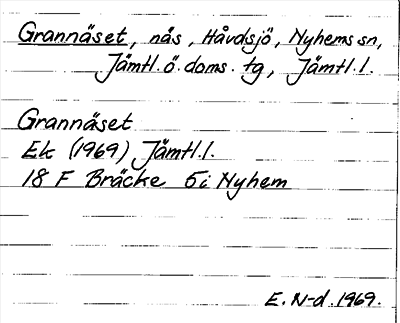 Grannäset, näs, Håvdsjö, Nyhems sn,
Jämtl. ö. doms. tg, Jämtl. l.
Grannäset
Ek (1969) Jämtl. l.
18 F Bräcke 5 i Nyhem
E. N-d. 1969.